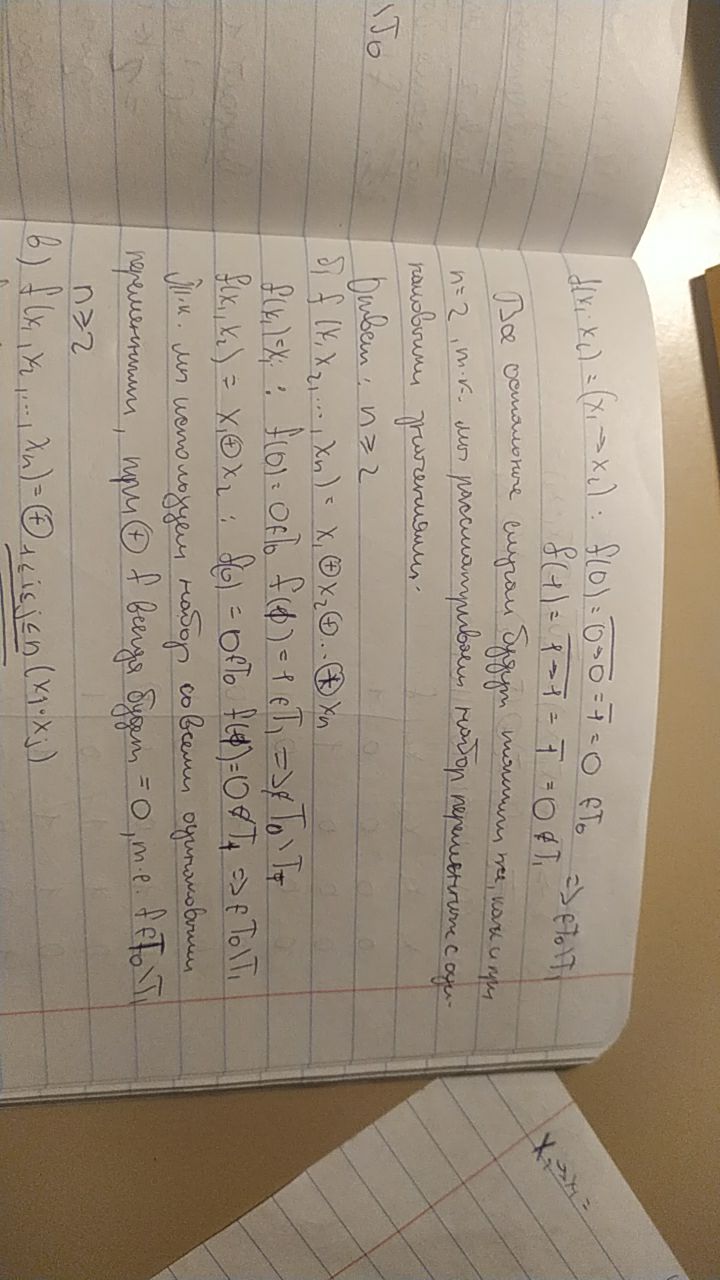 \T₀
f(x₁, x₂) = (x₁→x₂) : f(0) = \overline{0→0} = \overline{1} = 0 ∈T₀
f(1) = \overline{1→1} = \overline{1} = 0 ∉T₁ => ∈T₀\T₁
Все остальные случаи будут такими же, как и при
n=2, т.к. мы рассматриваем набор переменных с оди-
наковыми значениями.
Ответ: n ⩾ 2
б) f(x₁ x₂, ..., xₙ) = x₁ ⊕ x₂ ⊕ ... ⊕ xₙ
f(x₁) = x₁ : f(0) = 0 ∈T₀ f(1) = 1 ∈T₁ => ∉ T₀\T₁
f(x₁, x₂) = x₁⊕x₂ : f(0) = 0 ∈T₀ f(1) = 0 ∉ T₁ => ∈ T₀\T₁
Т.к. мы используем набор со всеми одинаковыми
переменными, при ⊕ f всегда будет = 0, т.е. f ∈ T₀\T₁
n ⩾ 2
в) f(x₁, x₂, ..., xₙ) = ⊕ 1≤i≤j≤n (xᵢ·xⱼ)